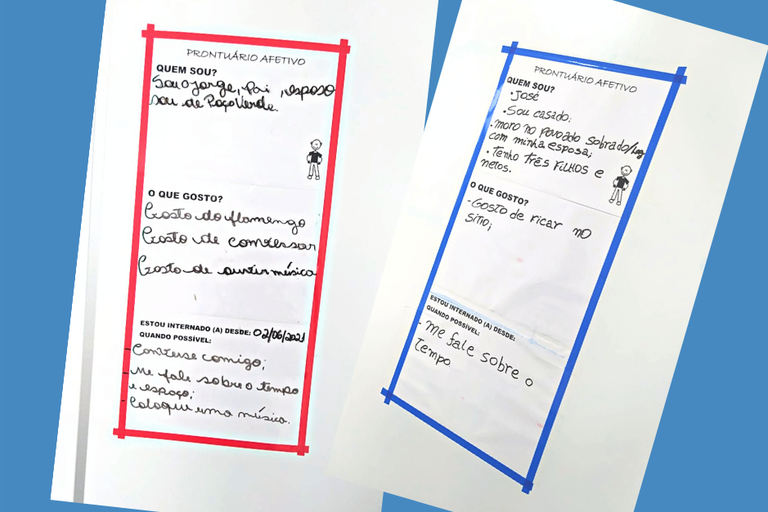 PRONTUÁRIO AFETIVO
QUEM SOU?
Sou o Jorge, Pai, esposo
sou de Poço Verde.
O QUE GOSTO?
Gosto do flamengo
Gosto de conversar
Gosto de ouvir música
ESTOU INTERNADO (A) DESDE: 02/06/2021
QUANDO POSSÍVEL:
- Converse comigo;
- Me fale sobre o tempo
e espaço;
- Coloque uma música.
PRONTUÁRIO AFETIVO
QUEM SOU?
• José
• Sou casado;
• moro no povoado Sobrado/
com minha esposa;
• Tenho três FILHOS e
netos.
O QUE GOSTO?
- Gosto de ficar no
sítio;
ESTOU INTERNADO (A) DESDE:
QUANDO POSSÍVEL:
- Me fale sobre o
tempo